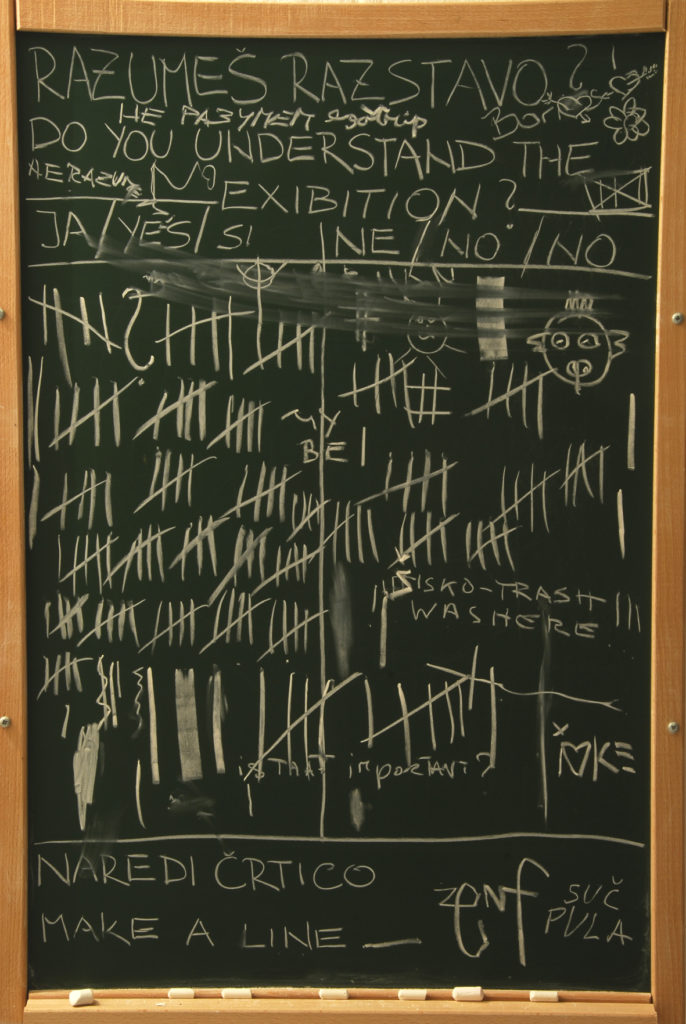 RAZUMEŠ RAZSTAVO?
НЕ РАЗУМЕМ
DO YOU UNDERSTAND THE
NE RAZUMEM
EXIBITION?
JA/YES/SI NE/NO/NO
MY
BE
SISKO-TRASH
WAS HERE
is THAT important?
NAREDI ČRTICO
MAKE A LINE
SUČ
PULA